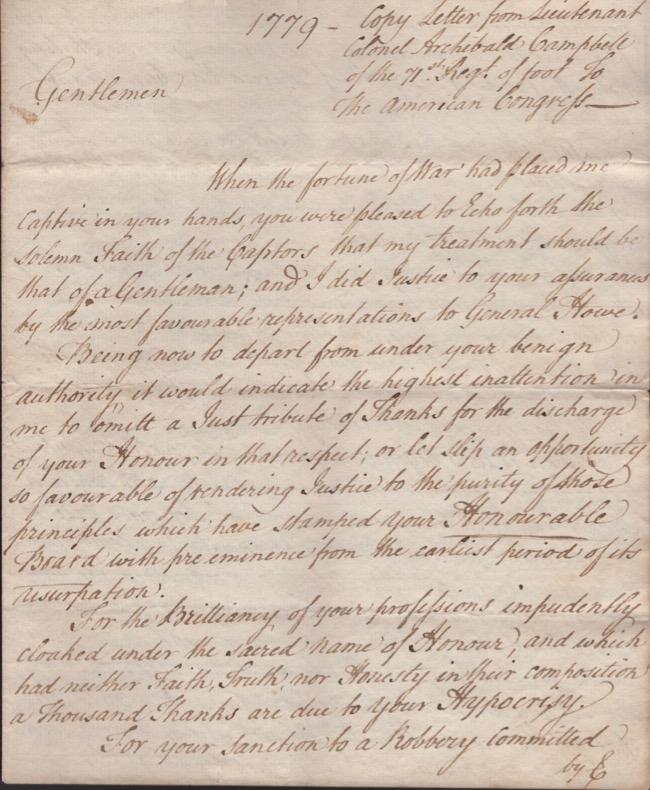 1779 – Copy Letter from Lieutenant
Colonel Archibald Campbell
of the 71st Regt. of foot To
The American Congress—
Gentlemen
When the fortune of War had placed me
captive in your hands, you were pleased to Echo forth the
solemn Faith of the Captors that my treatment should be
that of a Gentleman; and I did Justice to your assurances
by the most favourable representations to General Howe.
Being now to depart from under your benign
authority it would indicate the highest inattention in
me to omitt a Just tribute of Thanks for the discharge
of your Honour in that respect; or let slip an opportunity
so favourable of rendering Justice to the purity of those
principles which have stamped your Honourable
Board with pre eminence from the earliest period of its
usurpation.
For the Brilliancy of your professions impudently
cloaked under the sacred name of Honour, and which
had neither Faith, Truth, nor Honesty in their composition
a Thousand Thanks are due to your Hypocrisy.
For your sanction to a Robbery committed
by E